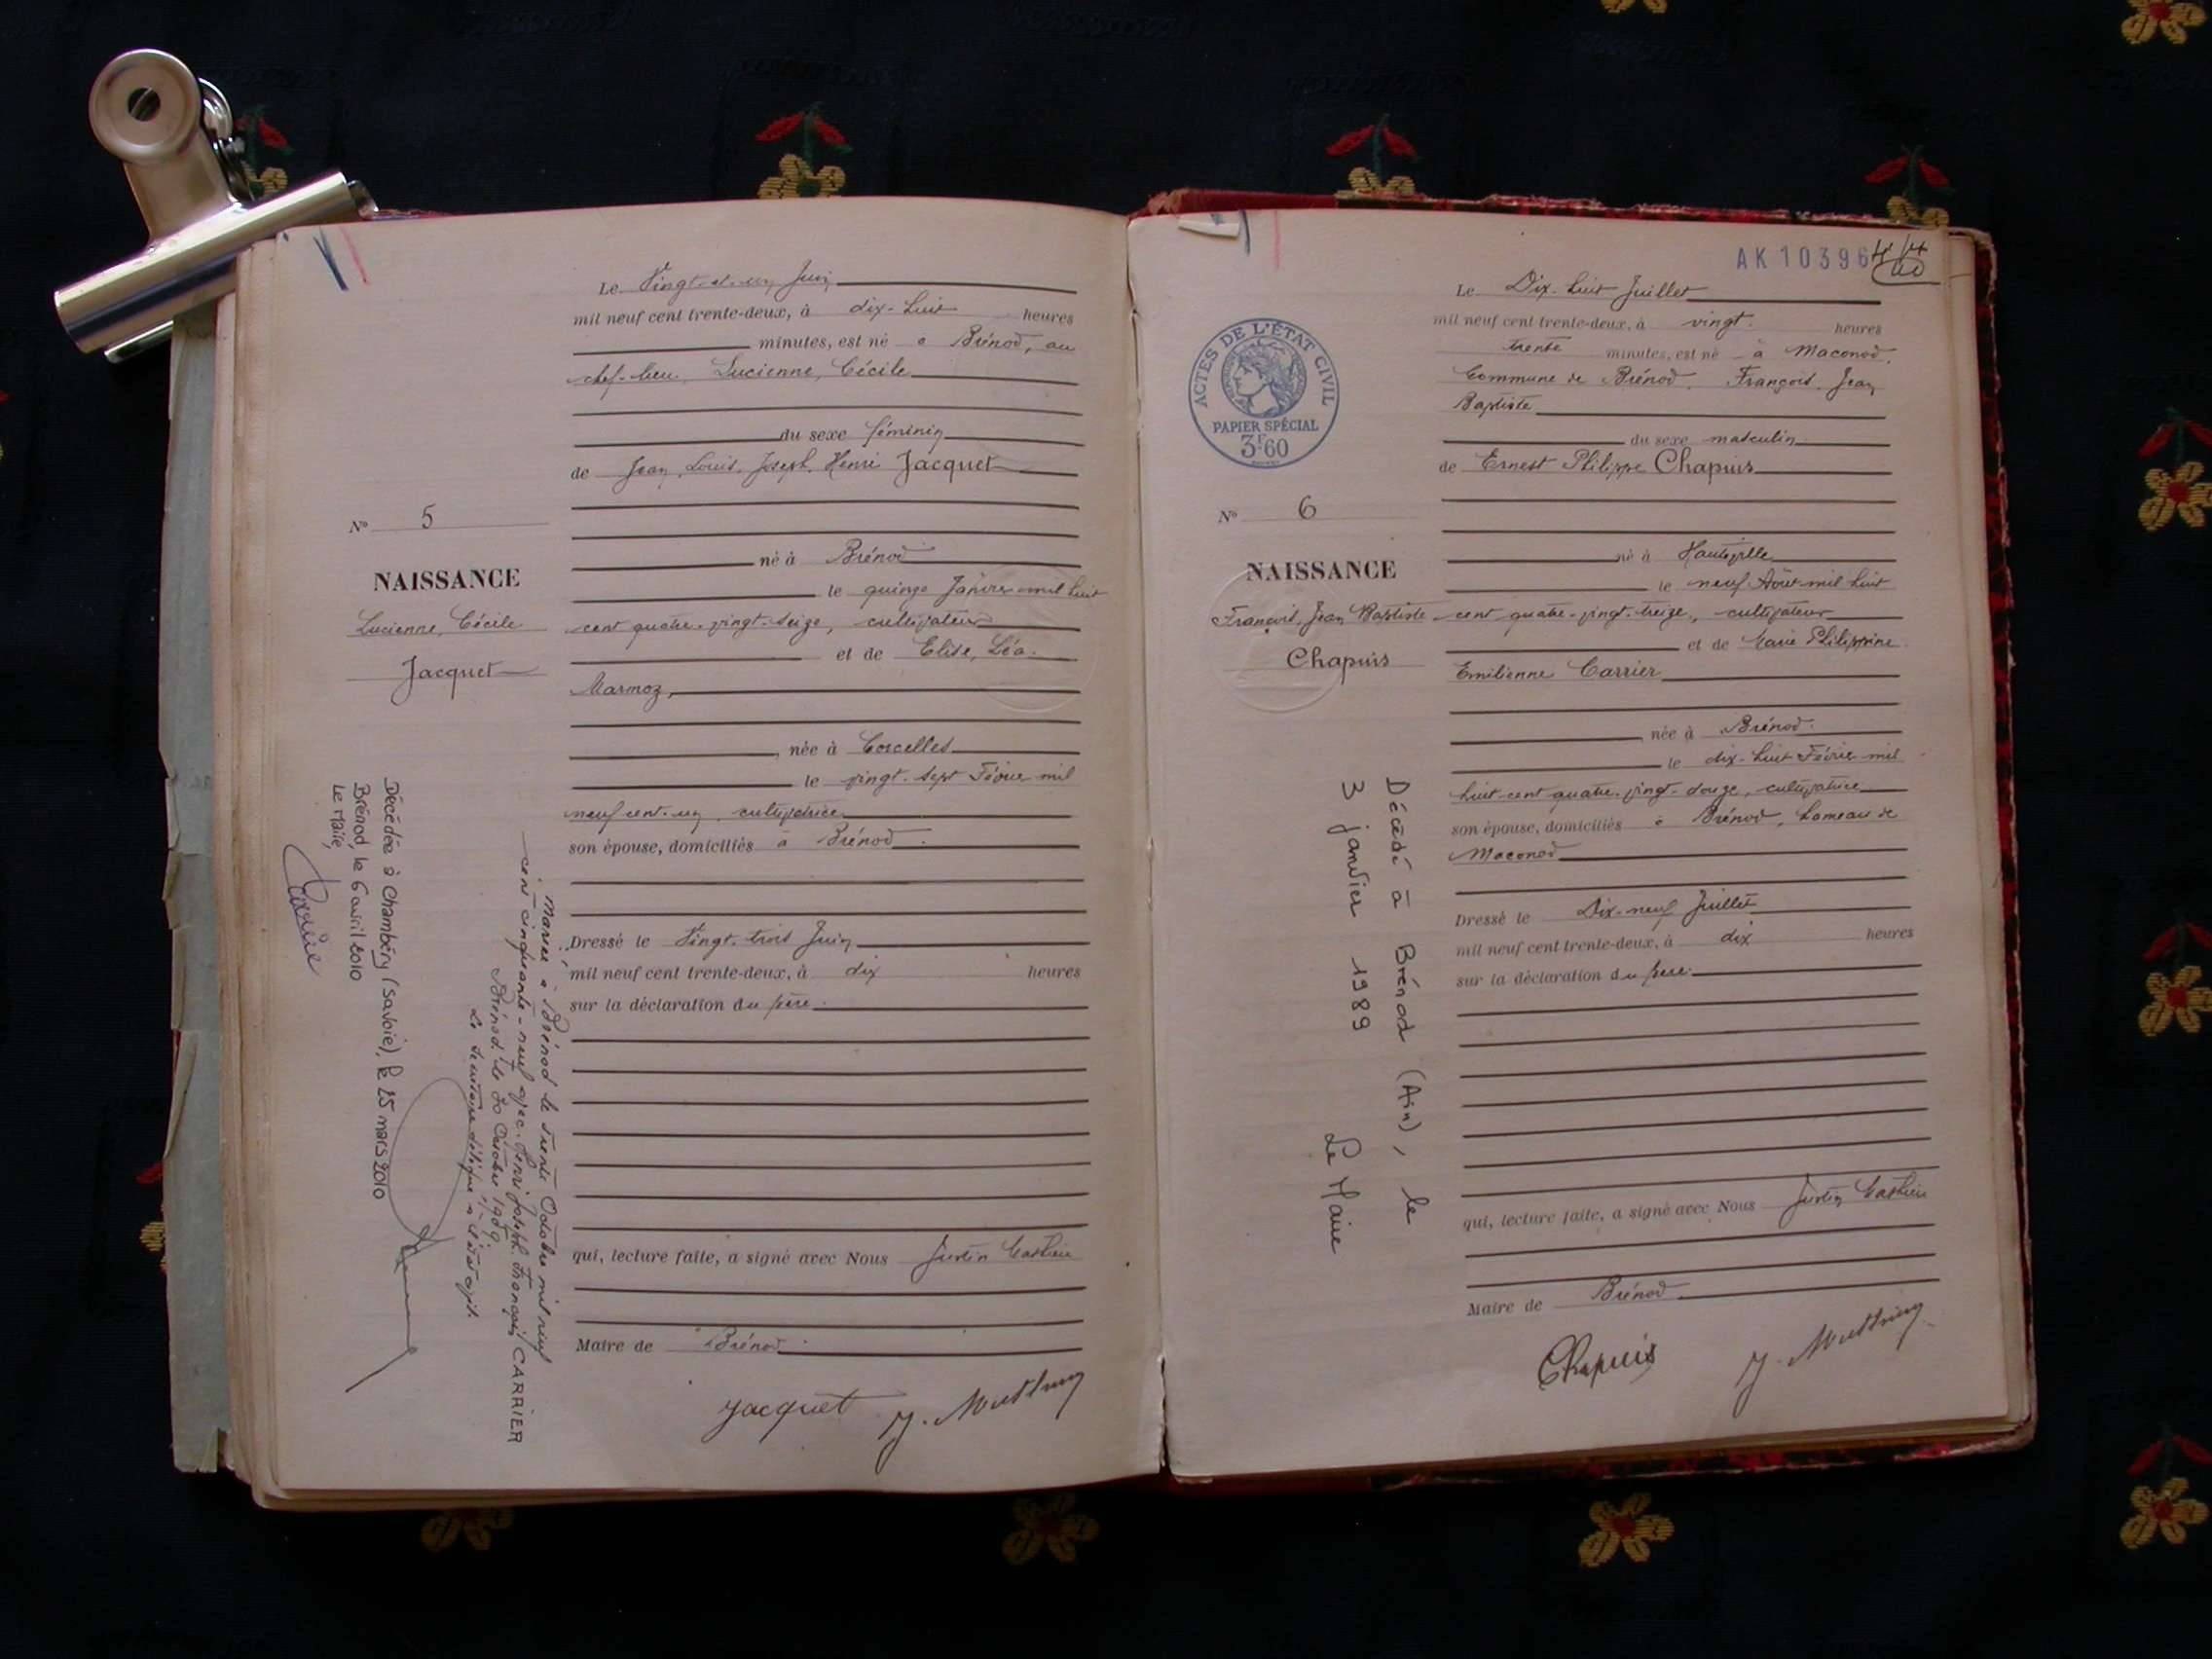 Le Vingt-et-un Juin
mil neuf cent trente-deux, à dix-huit heures
minutes, est né à Brénod, au
chef-lieu, Lucienne, Cécile
du sexe féminin
de Jean, Louis, Joseph, Henri Jacquet
né à Brénod
le quinze Janvier mil huit
cent quatre-vingt-seize, cultivateur
et de Elise, Léa
Marmoz,
née à Corcelles
le vingt-sept Février mil
neuf cent-un, cultivatrice
son épouse, domiciliés à Brénod.
Dressé le Vingt-trois Juin
mil neuf cent trente-deux, à dix heures
sur la déclaration du père.
qui, lecture faite, a signé avec Nous Justin
Maire de Brénod
Jacquet J.
No 5
NAISSANCE
Lucienne, Cécile
Jacquet
Mariée à Brénod le trente Octobre mil neuf
cent cinquante-neuf avec Henri Joseph François CARRIER
Brénod le 30 Octobre 1959.
Le Secrétaire délégué à l'état civil
Décédée à Chambéry (Savoie), le 25 mars 2010
Brénod, le 6 avril 2010
Le Maire,
AK 10396
ACTES DE L'ÉTAT CIVIL
PAPIER SPÉCIAL
3F60
Le Dix-huit Juillet
mil neuf cent trente-deux, à vingt heures
trente minutes, est né à Maconod,
Commune de Brénod, François, Jean
Baptiste
du sexe masculin
de Ernest Philippe Chapuis
né à Hauteville
le neuf Août mil huit
cent quatre-vingt-treize, cultivateur
et de Marie Philippine
Emilienne Carrier
née à Brénod
le dix-huit Février mil
huit cent quatre-vingt-douze, cultivatrice
son épouse, domiciliés à Brénod, hameau de
Maconod
Dressé le Dix-neuf Juillet
mil neuf cent trente-deux, à dix heures
sur la déclaration du père.
qui, lecture faite, a signé avec Nous Justin
Maire de Brénod
Chapuis J.
No 6
NAISSANCE
François, Jean Baptiste
Chapuis
Décédé à Brénod (Ain), le
3 janvier 1989
Le Maire